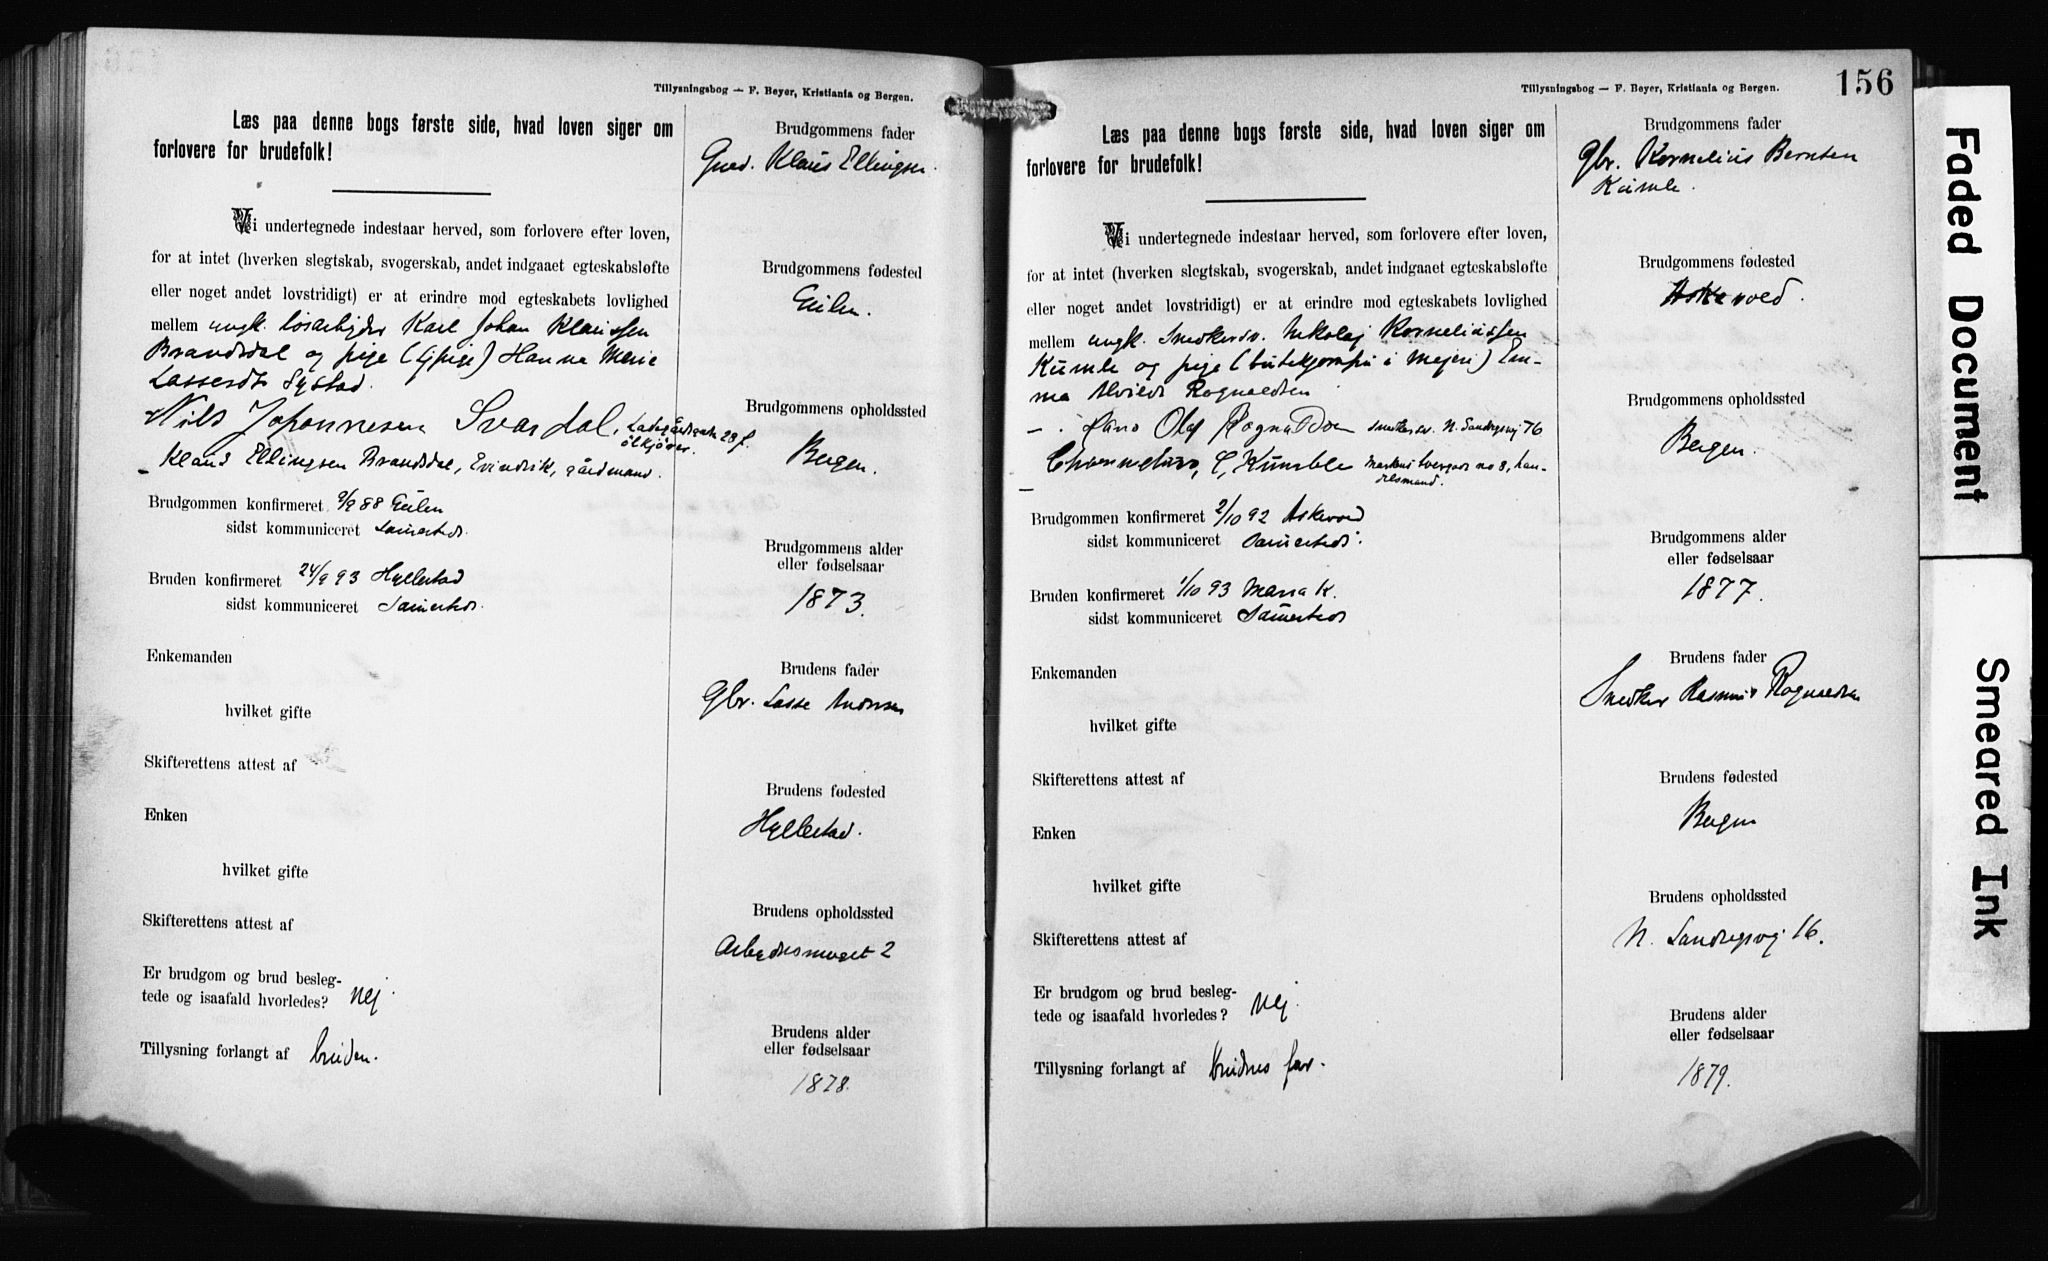 Tillysningsbog — F. Beyer, Kristiania og Bergen.
Læs paa denne bogs første side, hvad loven siger om
forlovere for brudefolk!
Vi undertegnede indestaar herved, som forlovere efter loven,
for at intet (hverken slegtskab, svogerskab, andet indgaaet egteskabsløfte
eller noget andet lovstridigt) er at erindre mod egteskabets lovlighed
mellem ungk. løsarbejder Karl Johan Klaussen
Brandsdal og pige (tj. pige) Hanna Marie
Lassesdt. Systad.
Nils Johannesen Svardal, Ladegårdsgate 28 f.
ølkjører.
Klaus Ellingsen Brandsdal, Evindvik, gårdmand.
Brudgommen konfirmeret 9/9 88 Eulen
sidst kommuniceret Samesteds.
Bruden konfirmeret 24/9 93 Hyllestad
sidst kommuniceret Samesteds.
Enkemanden
hvilket gifte
Skifterettens attest af
Enken
hvilket gifte
Skifterettens attest af
Er brudgom og brud besleg-
tede og isaafald hvorledes? Nej.
Tillysning forlangt af bruden.
Brudgommens fader
Gmd. Klaus Ellingsen.
Brudgommens fødested
Eulen.
Brudgommens opholdssted
Bergen.
Brudgommens alder
eller fødselsaar
1873.
Brudens fader
Gbr. Lasse Andersen
Brudens fødested
Hyllestad.
Brudens opholdssted
2
Brudens alder
eller fødselsaar
1878.
156
Tillysningsbog — F. Beyer, Kristiania og Bergen.
Læs paa denne bogs første side, hvad loven siger om
forlovere for brudefolk!
Vi undertegnede indestaar herved, som forlovere efter loven,
for at intet (hverken slegtskab, svogerskab, andet indgaaet egteskabsløfte
eller noget andet lovstridigt) er at erindre mod egteskabets lovlighed
mellem ungk. Snedkersv. Nikolaj Korneliussen
Kumle og pige (butikjomfru i Mejeri) Em-
ma Alvilde Rognaldsen
Hans Olaf Rognaldsen snedkersv. N. Sandvigsvej 16
C. Kumble no 8, han-
delsmand.
Brudgommen konfirmeret 2/10 92 Askevold
sidst kommuniceret Samesteds.
Bruden konfirmeret 1/10 93 Maria K.
sidst kommuniceret Samesteds
Enkemanden
hvilket gifte
Skifterettens attest af
Enken
hvilket gifte
Skifterettens attest af
Er brudgom og brud besleg-
tede og isaafald hvorledes? Nej.
Tillysning forlangt af brudens far.
Brudgommens fader
Gbr. Kornelius Berntsen
Kumle.
Brudgommens fødested
Askevold.
Brudgommens opholdssted
Bergen.
Brudgommens alder
eller fødselsaar
1877.
Brudens fader
Snedker Rasmus Rognaldsen
Brudens fødested
Bergen
Brudens opholdssted
N. Sandvigsvej 16.
Brudens alder
eller fødselsaar
1879.
Faded Document
Smeared Ink